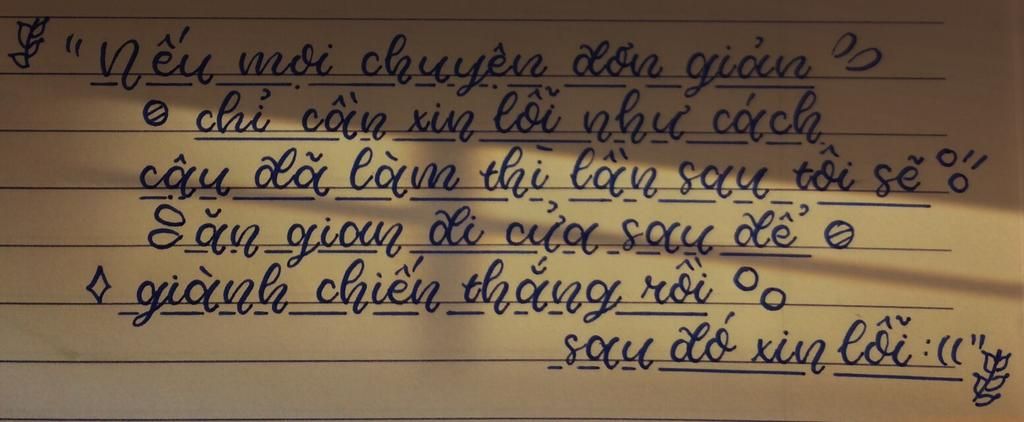 "Nếu mọi chuyện đơn giản
chỉ cần xin lỗi như cách
cậu đã làm thì lần sau tôi sẽ
ăn gian đi cửa sau để
giành chiến thắng rồi
sau đó xin lỗi :(("